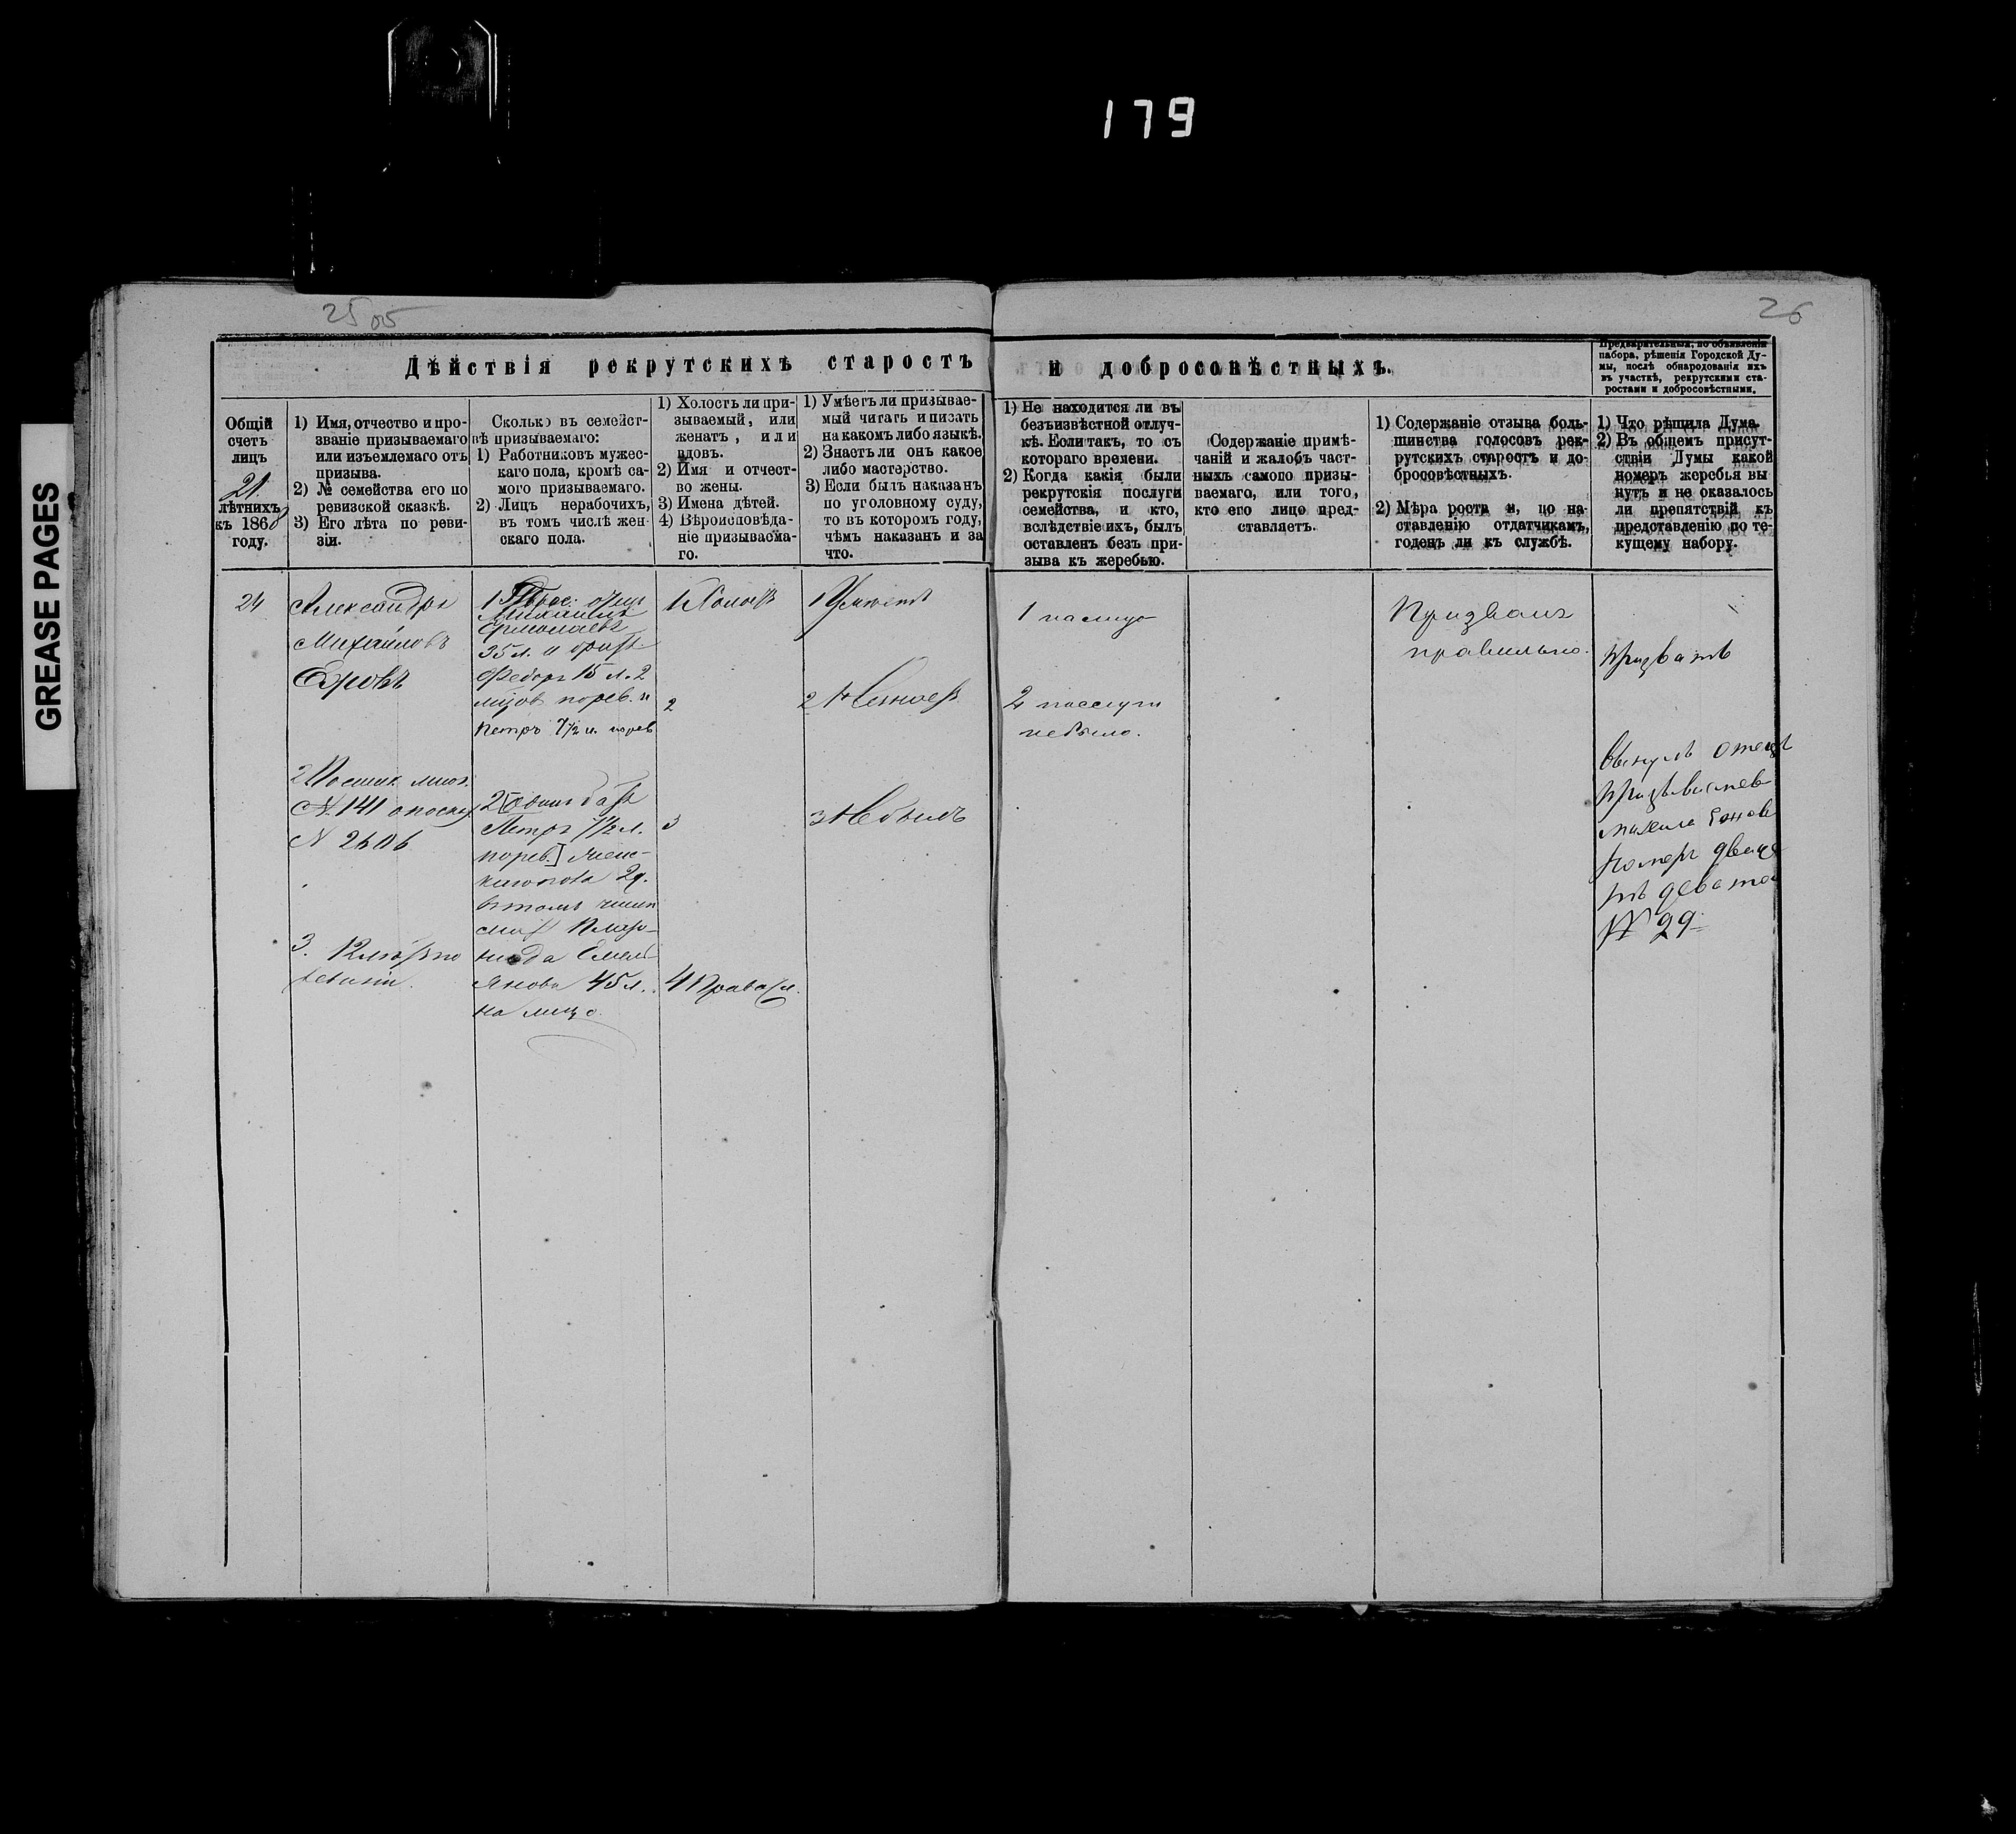 179
GREASE PAGES
25 об
26
Дѣйствія рекрутскихъ старостъ и добросовѣстныхъ.
Предварительныя, по объявленіи
набора, рѣшенія Городской Ду-
мы, послѣ обнародованія ихъ
въ участкѣ, рекрутскими ста-
ростами и добросовѣстными.
Общій
счетъ
лицъ
21
лѣтнихъ
къ 1868
году.
1) Имя, отчество и про-
званіе призываемаго
или изъемлемаго отъ
призыва.
2) № семейства его по
ревизской сказкѣ.
3) Его лѣта по реви-
зіи.
Сколько въ семейст-
вѣ призываемаго:
1) Работниковъ мужес-
каго пола, кромѣ са-
мого призываемаго.
2) Лицъ нерабочихъ,
въ томъ числѣ жен-
скаго пола.
1) Холостъ ли при-
зываемый, или
женатъ, или
вдовъ.
2) Имя и отчест-
во жены.
3) Имена дѣтей.
4) Вѣроисповѣда-
ніе призываема-
го.
1) Умѣетъ ли призывае-
мый читать и писать
на какомъ либо языкѣ.
2) Знаетъ ли онъ какое
либо мастерство.
3) Если былъ наказанъ
по уголовному суду,
то въ которомъ году,
чѣмъ наказанъ и за
что.
1) Не находится ли въ
безъизвѣстной отлуч-
кѣ. Если такъ, то съ
котораго времени.
2) Когда какія были
рекрутскія послуги
семейства, и кто,
вслѣдствіе ихъ, былъ
оставленъ безъ при-
зыва къ жеребью.
Содержаніе примѣ-
чаній и жалобъ част-
ныхъ самого призы-
ваемаго, или того,
кто его лицо пред-
ставляетъ.
1) Содержаніе отзыва боль-
шинства голосовъ рек-
рутскихъ старостъ и до-
бросовѣстныхъ.
2) Мѣра роста и, по на-
ставленію отдатчикамъ,
годенъ ли къ службѣ.
1) Что рѣшила Дума.
2) Въ общемъ присут-
ствіи Думы какой
номеръ жеребья вы
нутъ и не оказалось
ли препятствій къ
представленію по те-
кущему набору.
24
Александръ
Михайловъ
2
N. 141
N 2606
3. 12 лѣтъ по
ревизіи.
1 отецъ
Михаилъ
Ермолаевъ
35 л. и братъ
Федоръ 15 л. 2
порев. и
Петръ 7 1/2 л. порев
2 [Одинъ братъ
Петръ 7 1/2 л.
порев.] женс-
каго пола 2 д.
въ томъ числѣ
мать
Емель
янова 45 л.
на лицо
1 Холостъ
2
3
4 Правосл.
1 Умѣетъ
2 Незнаетъ
3 Небылъ
1 на лицо
2 послуги
небыло.
Призванъ
правильно.
призвать
Вынулъ отецъ
номеръ двадца
ть девятой
№ 29